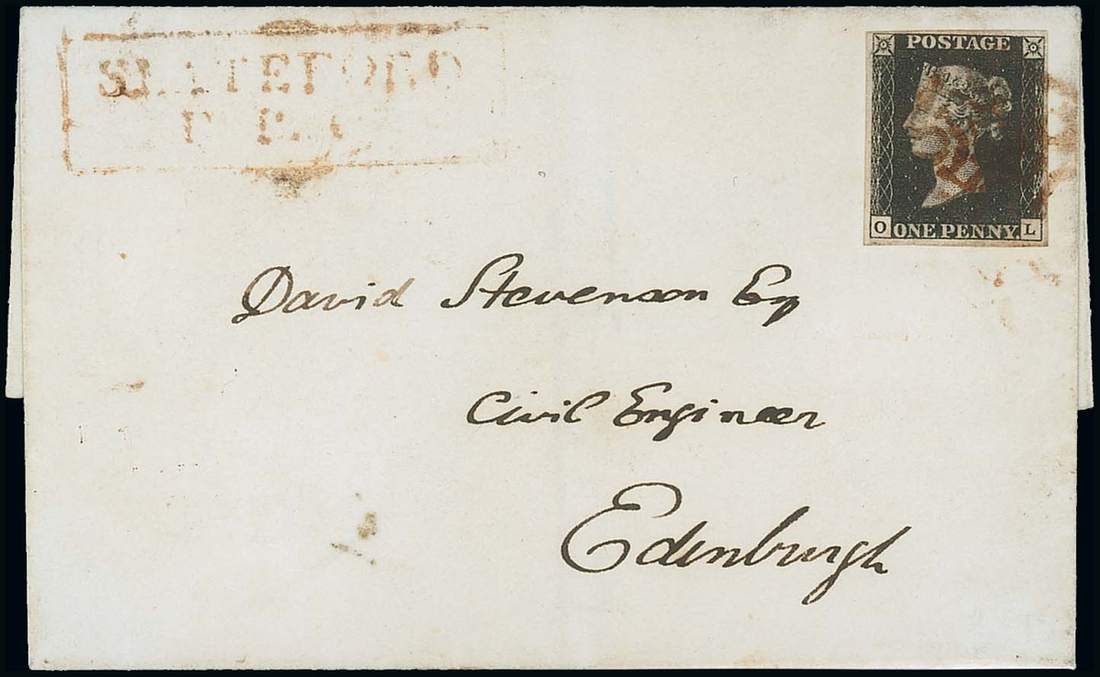 POSTAGE
ONE PENNY.
O L
David Stevenson Esq
Civil Engineer
Edinburgh